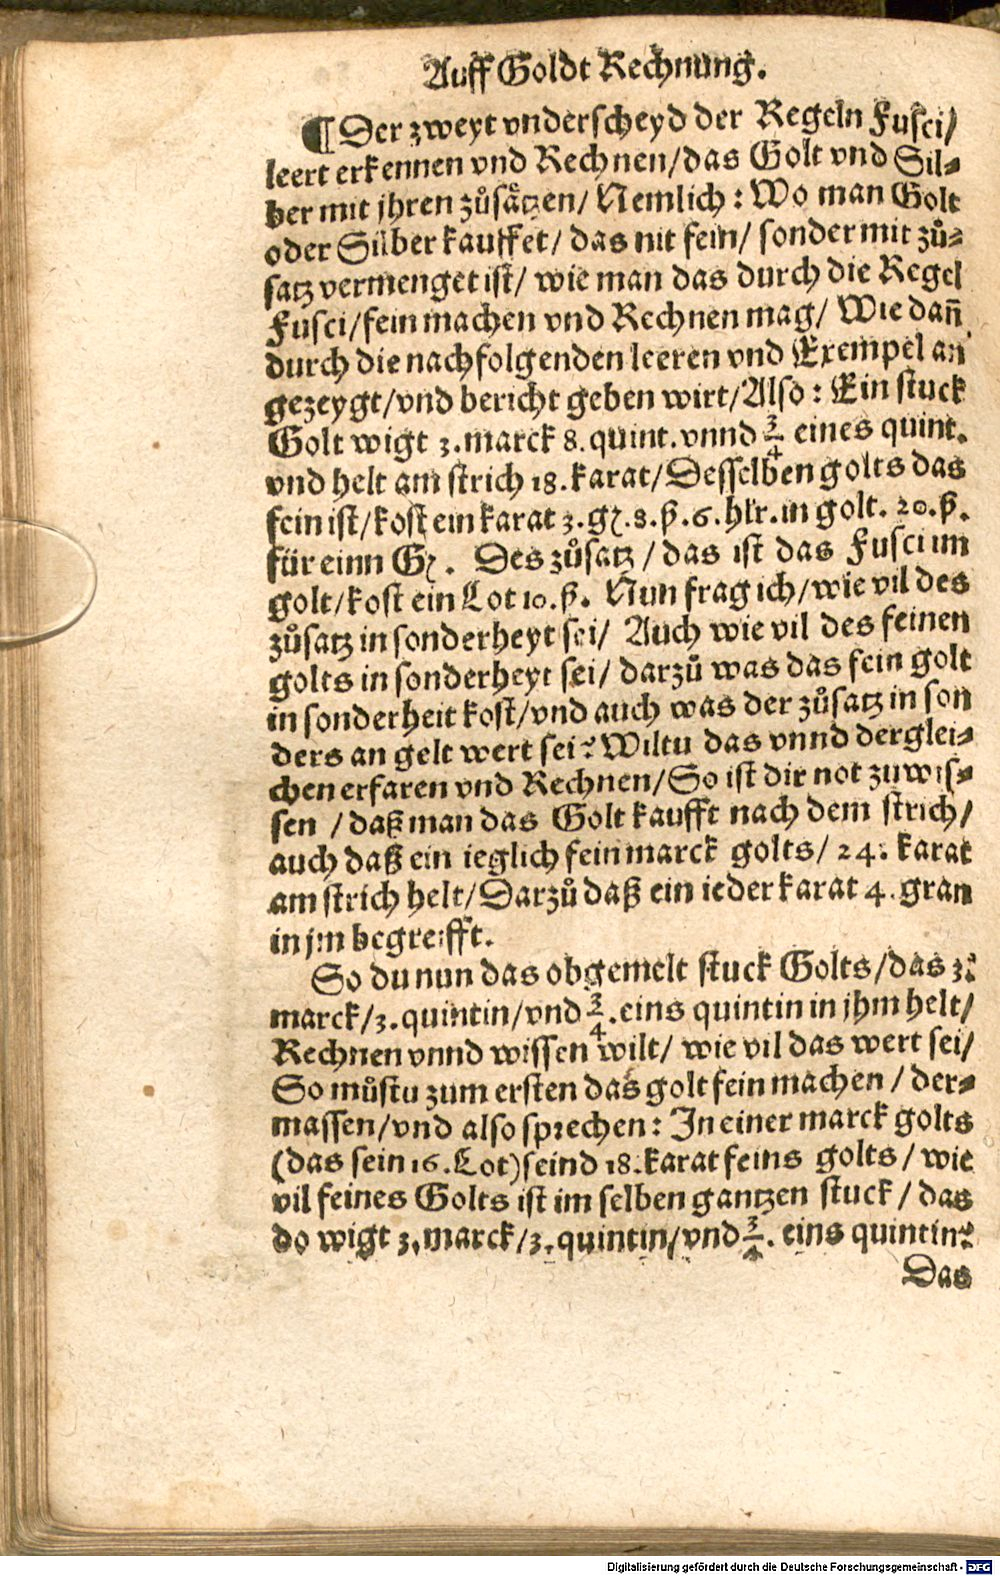 Auff Goldt Rechnung.
¶ Der zweyt vnderscheyd der Regeln Fusci/
leert erkennen vnd Rechnen/das Golt vnd Sil-
ber mit jhren zůsåtzen/ Nemlich: Wo man Golt
oder Silber kauffet/ das nit fein/ sonder mit zů-
satz vermenget ist/ wie man das durch die Regel
Fusci/fein machen vnd Rechnen mag/ Wie dañ
durch die nachfolgenden leeren vnd Exempel an
gezeygt/vnd bericht geben wirt/Also: Ein stuck
Golt wigt 3. marck 8. quint. vnnd 3/4 eines quint.
vnd helt am strich 18. karat/Desselben golts das
fein ist/kost ein karat 3. gz. 8. ß. 6. hlr. in golt. 20. ß.
für einn Gz. Des zůsatz / das ist das Fusci im
golt/kost ein Lot 10. ß. Nun frag ich/wie vil des
zůsatz in sonderheyt sei/ Auch wie vil des feinen
golts in sonderheyt sei/ darzů was das fein golt
in sonderheit kost/vnd auch was der zůsatz in son
ders an gelt wert sei? Wiltu das vnnd derglei-
chen erfaren vnd Rechnen/So ist dir not zu wis-
sen / daß man das Golt kaufft nach dem strich/
auch daß ein ieglich fein marck golts/ 24. karat
am strich helt/Darzů daß ein ieder karat 4. gran
in jm begreifft.
So du nun das obgemelt stuck Golts/das 3.
marck/3. quintin/vnd 3/4. eins quintin in jhm helt/
Rechnen vnnd wissen wilt/ wie vil das wert sei/
So můstu zum ersten das golt fein machen / der-
massen/vnd also sprechen: In einer marck golts
(das sein 16. Lot) seind 18. karat feins golts/ wie
vil feines Golts ist im selben gantzen stuck / das
do wigt 3. marck/3. quintin/vnd 3/4. eins quintin?
Das
Digitalisierung gefördert durch die Deutsche Forschungsgemeinschaft - DFG